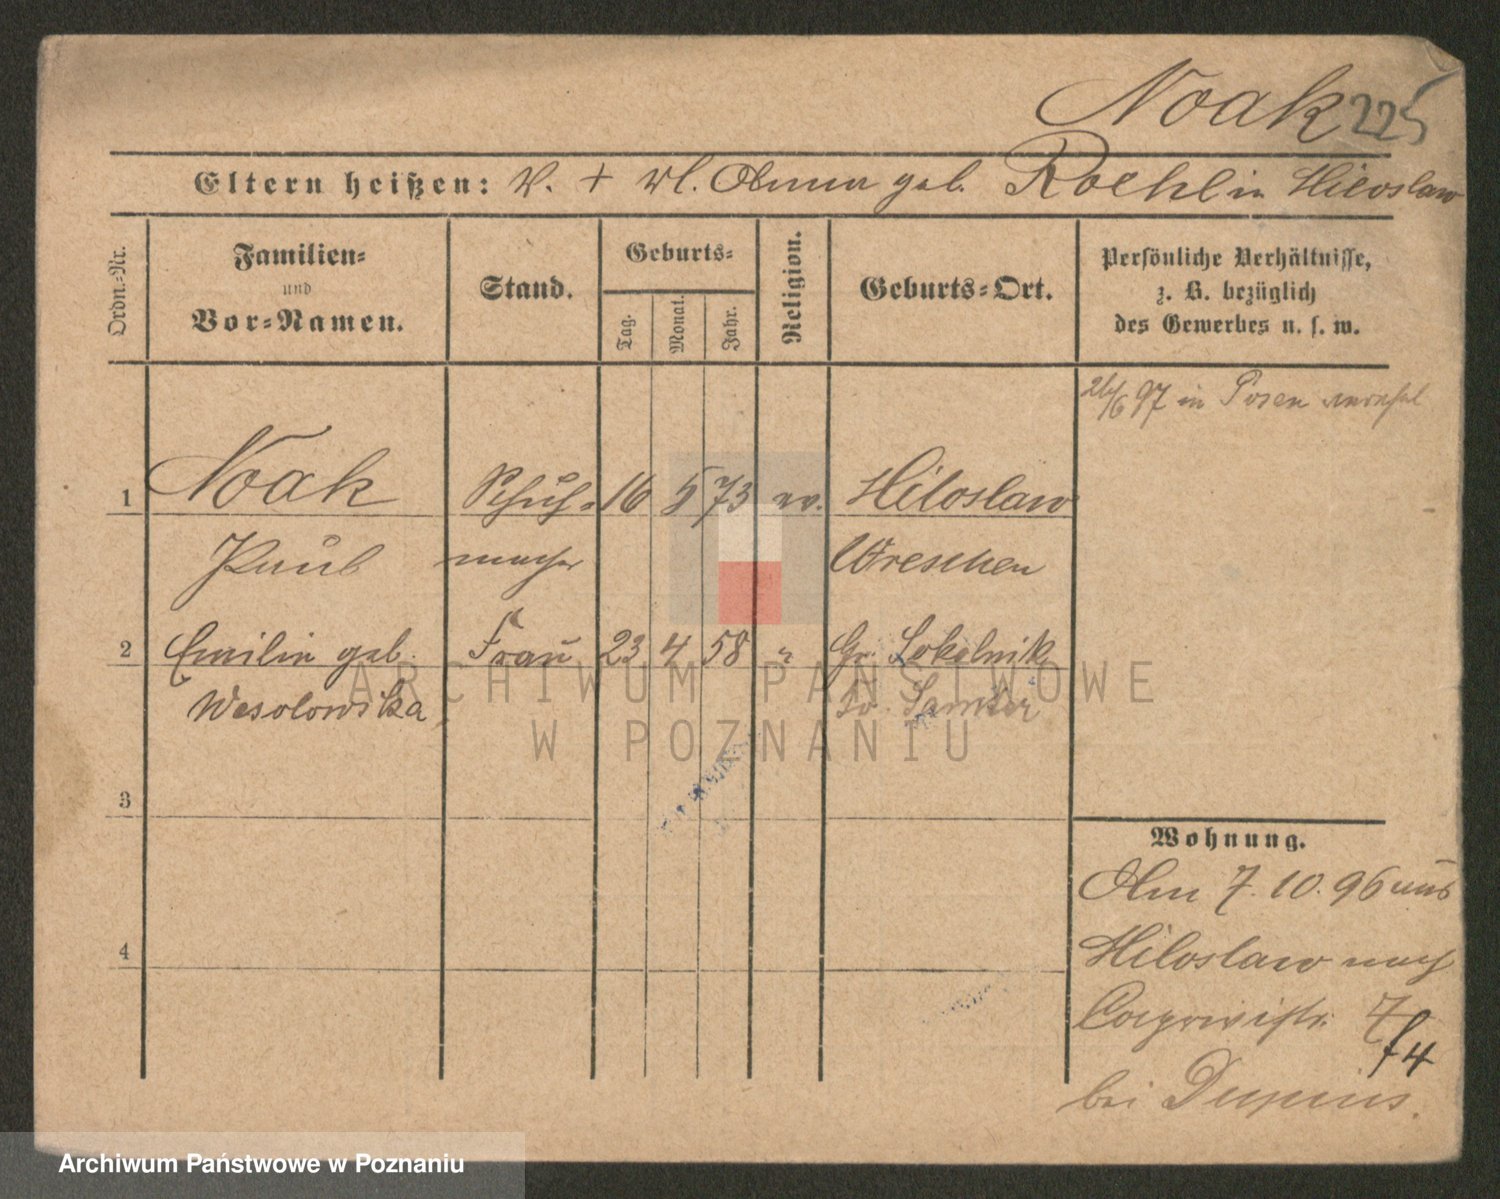 Noak 225
Eltern heißen: V. + Wl. Anna geb. Roehl in Miloslaw
Ordn.-Nr.
Familien-
und
Vor-Namen.
Stand.
Geburts-
Tag.
Monat.
Jahr.
Religion.
Geburts-Ort.
Persönliche Verhältnisse,
z. B. bezüglich
des Gewerbes u. s. w.
26/6 97 in Posen
1 Noak Schuh- 16 5 73 ev. Miloslaw
Paul macher Wreschen
2 Emilie geb. Frau 23 4 58 " Gr. Sokolnik
Wesolowska Kr. Samter
3
4
Wohnung.
Am 7. 10. 96 aus
Miloslaw nach
7
f4
bei
ARCHIWUM PAŃSTWOWE
W POZNANIU
Archiwum Państwowe w Poznaniu